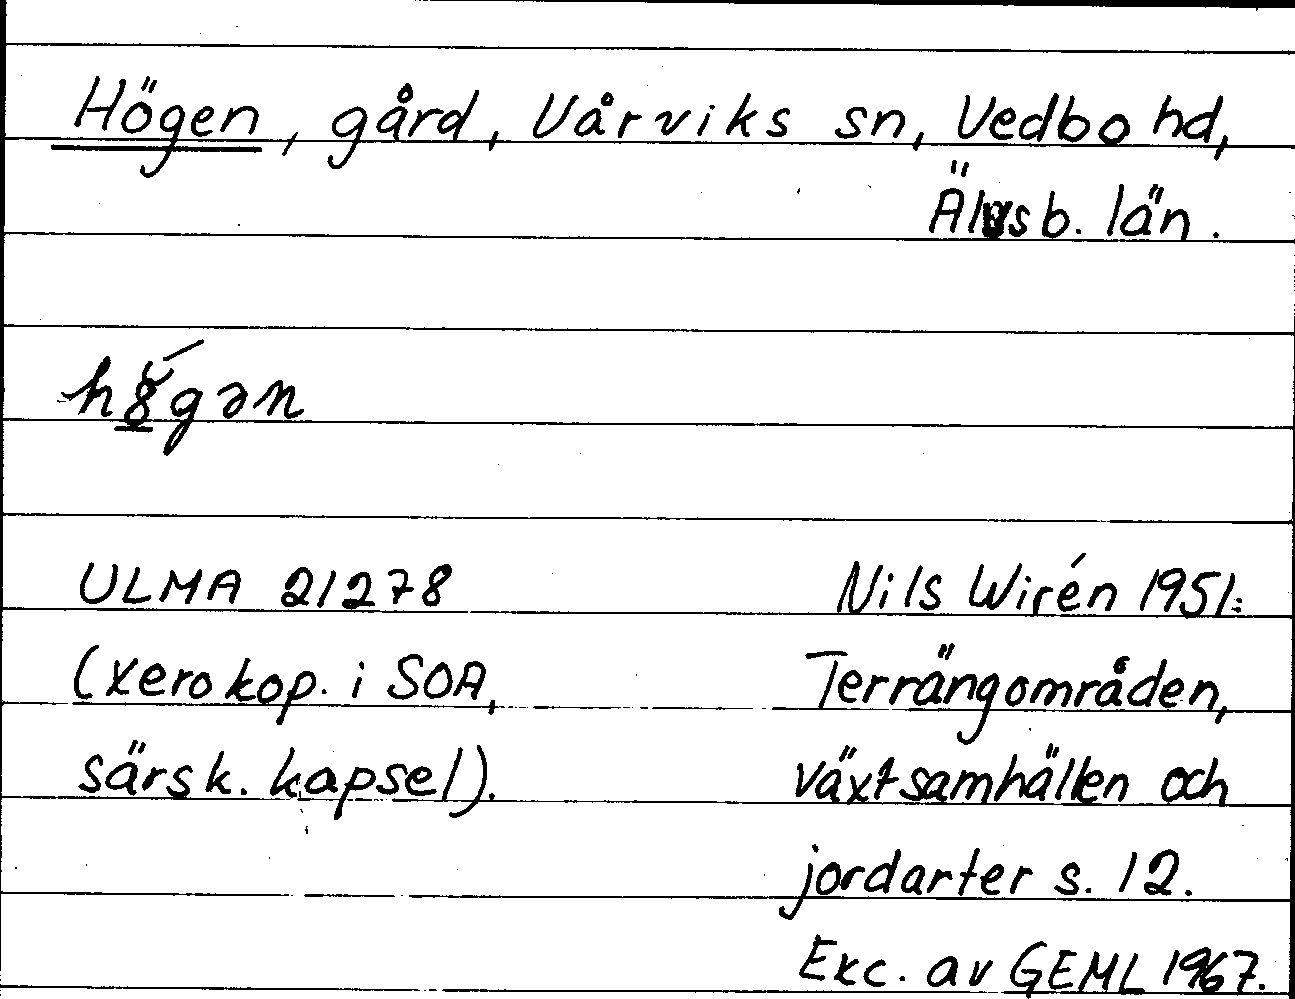 Högen, gård, Vårviks sn, Vedbo hd,
Älvsb. län.
ULMA 21278
Nils Wirén 1951:
(xerokop. i SOA,
Terrängområden,
särsk. kapsel).
växtsamhällen och
jordarter s. 12.
Exc. av GEML 1967.